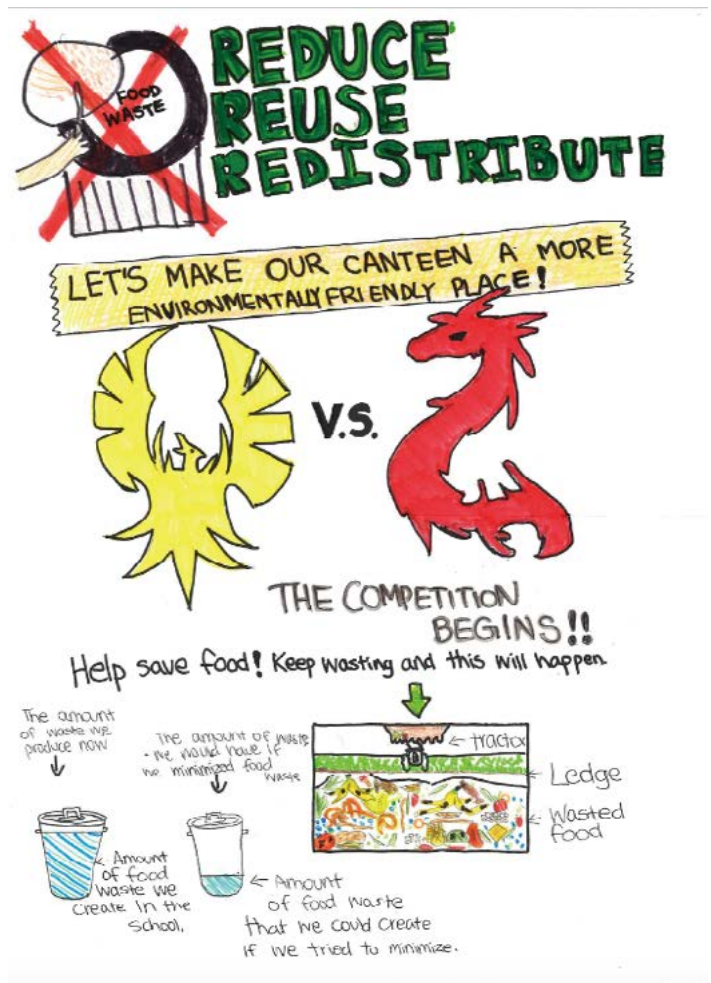 REDUCE
REUSE
REDISTRIBUTE
FOOD
WASTE
LET'S MAKE OUR CANTEEN A MORE
ENVIRONMENTALLY FRIENDLY PLACE!
V.S.
THE COMPETITION
BEGINS!!
Help save food! Keep wasting and this will happen
The amount
of waste we
produce now
The amount of waste
we would have if
we minimized food
waste
tractor
Ledge
Wasted
food
Amount
of food
waste we
create in the
school.
Amount
of food waste
that we could create
if we tried to minimize.